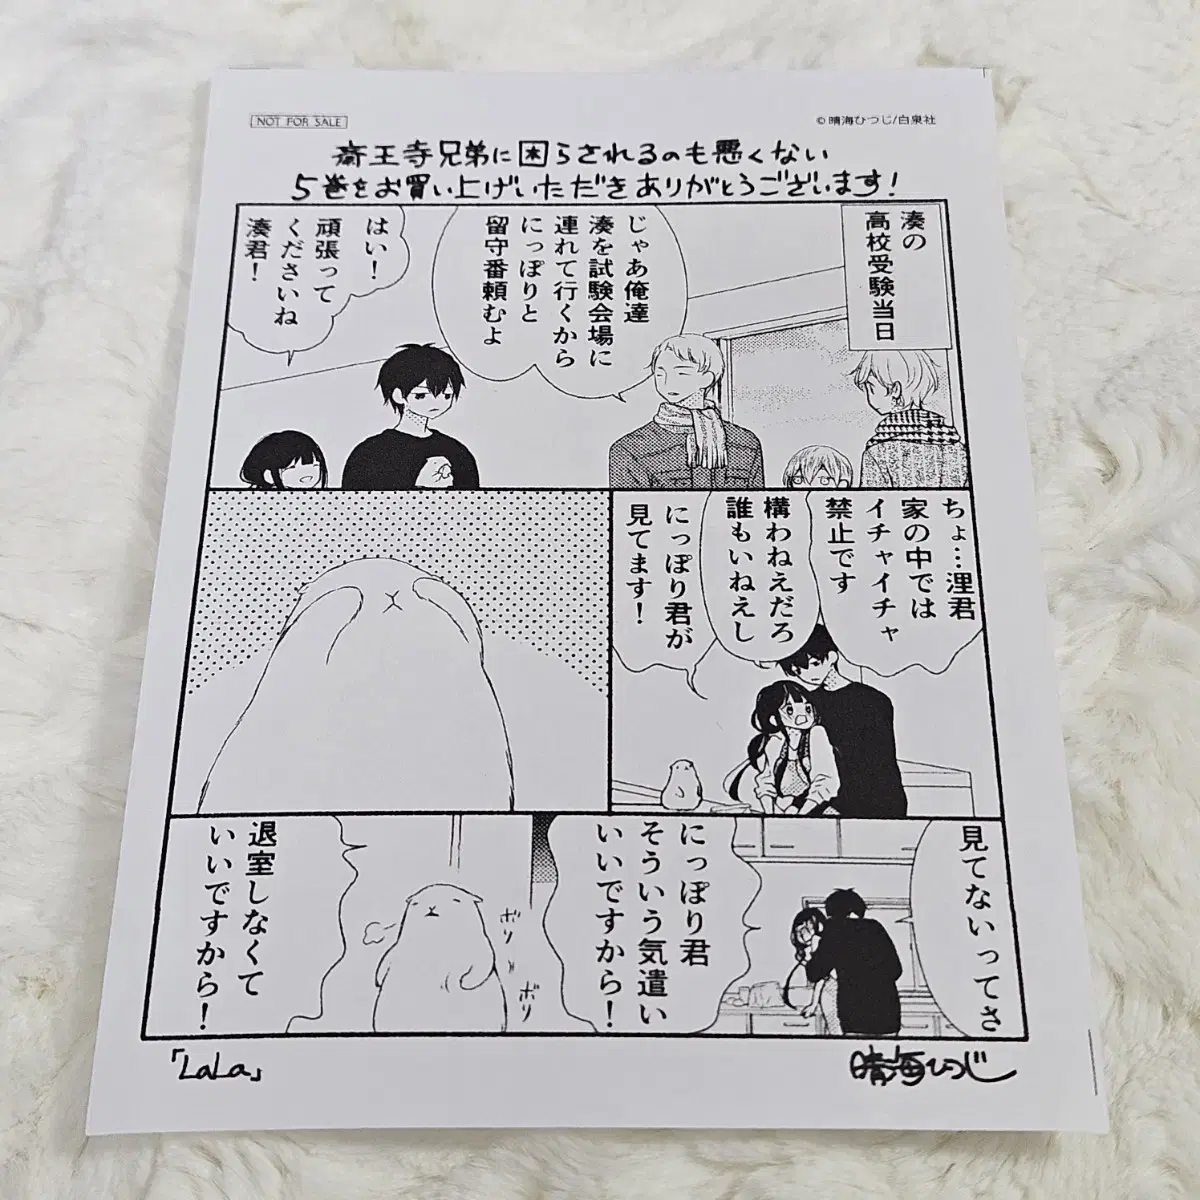 NOT FOR SALE
©晴海ひつじ/白泉社
斎王寺兄弟に困らされるのも悪くない
5巻をお買い上げいただきありがとうございます!
湊の
高校受験当日
じゃあ俺達
湊を試験会場に
連れて行くから
にっぽりと
留守番頼むよ
はい!
頑張って
くださいね
湊君!
ちょ…浬君
家の中では
イチャイチャ
禁止です
構わねえだろ
誰もいねえし
にっぽり君が
見てます!
見てないってさ
にっぽり君
そういう気遣い
いいですから!
ポリ
ポリ
退室しなくて
いいですから!
「LaLa」
晴海ひつじ